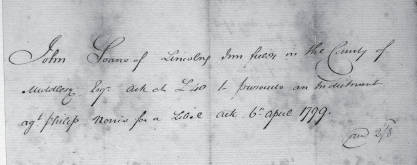 John Soane of Lincolns Inn fields in the County of
Middlesex Esqr. ack in £40 to prosecute an Indictment
agt Philip Norris for a Libel ack 6th April 1799.